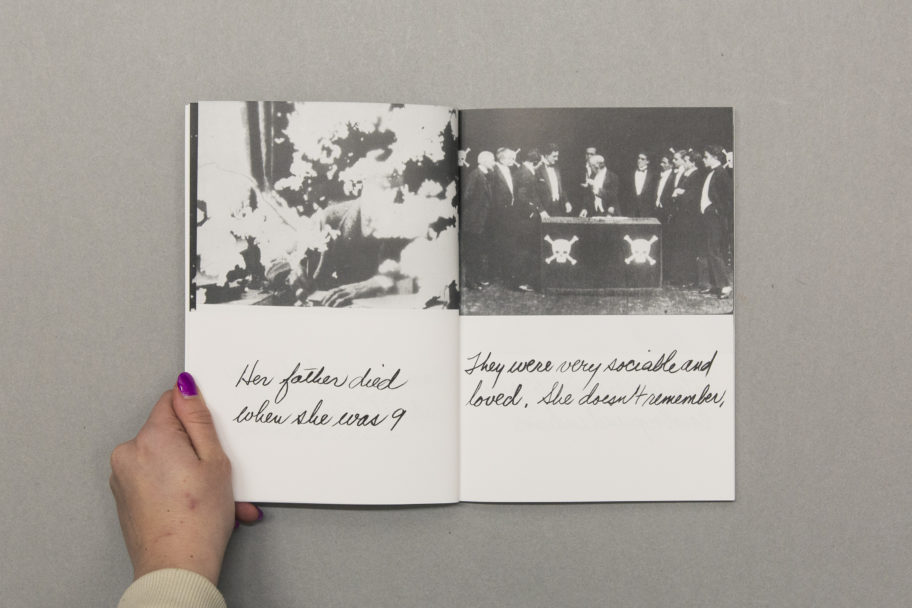 Her father died
when she was 9
They were very sociable and
loved. She doesn't remember,